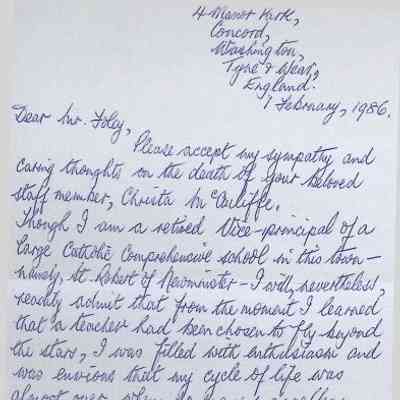 4 Manor Park,
Concord,
Washington,
Tyne & Wear,
England.
1 February, 1986.
Dear Mr. Foley,
Please accept my sympathy and
caring thoughts in the death of your beloved
staff member, Christa McAuliffe.
Though I am a retired Vice-principal of a
large Catholic Comprehensive school in this town -
namely, St. Robert of Newminster - I will, nevertheless,
readily admit that from the moment I learned
that a teacher had been chosen to fly beyond
the stars, I was filled with enthusiasm and
was envious that my cycle of life was
almost over, when